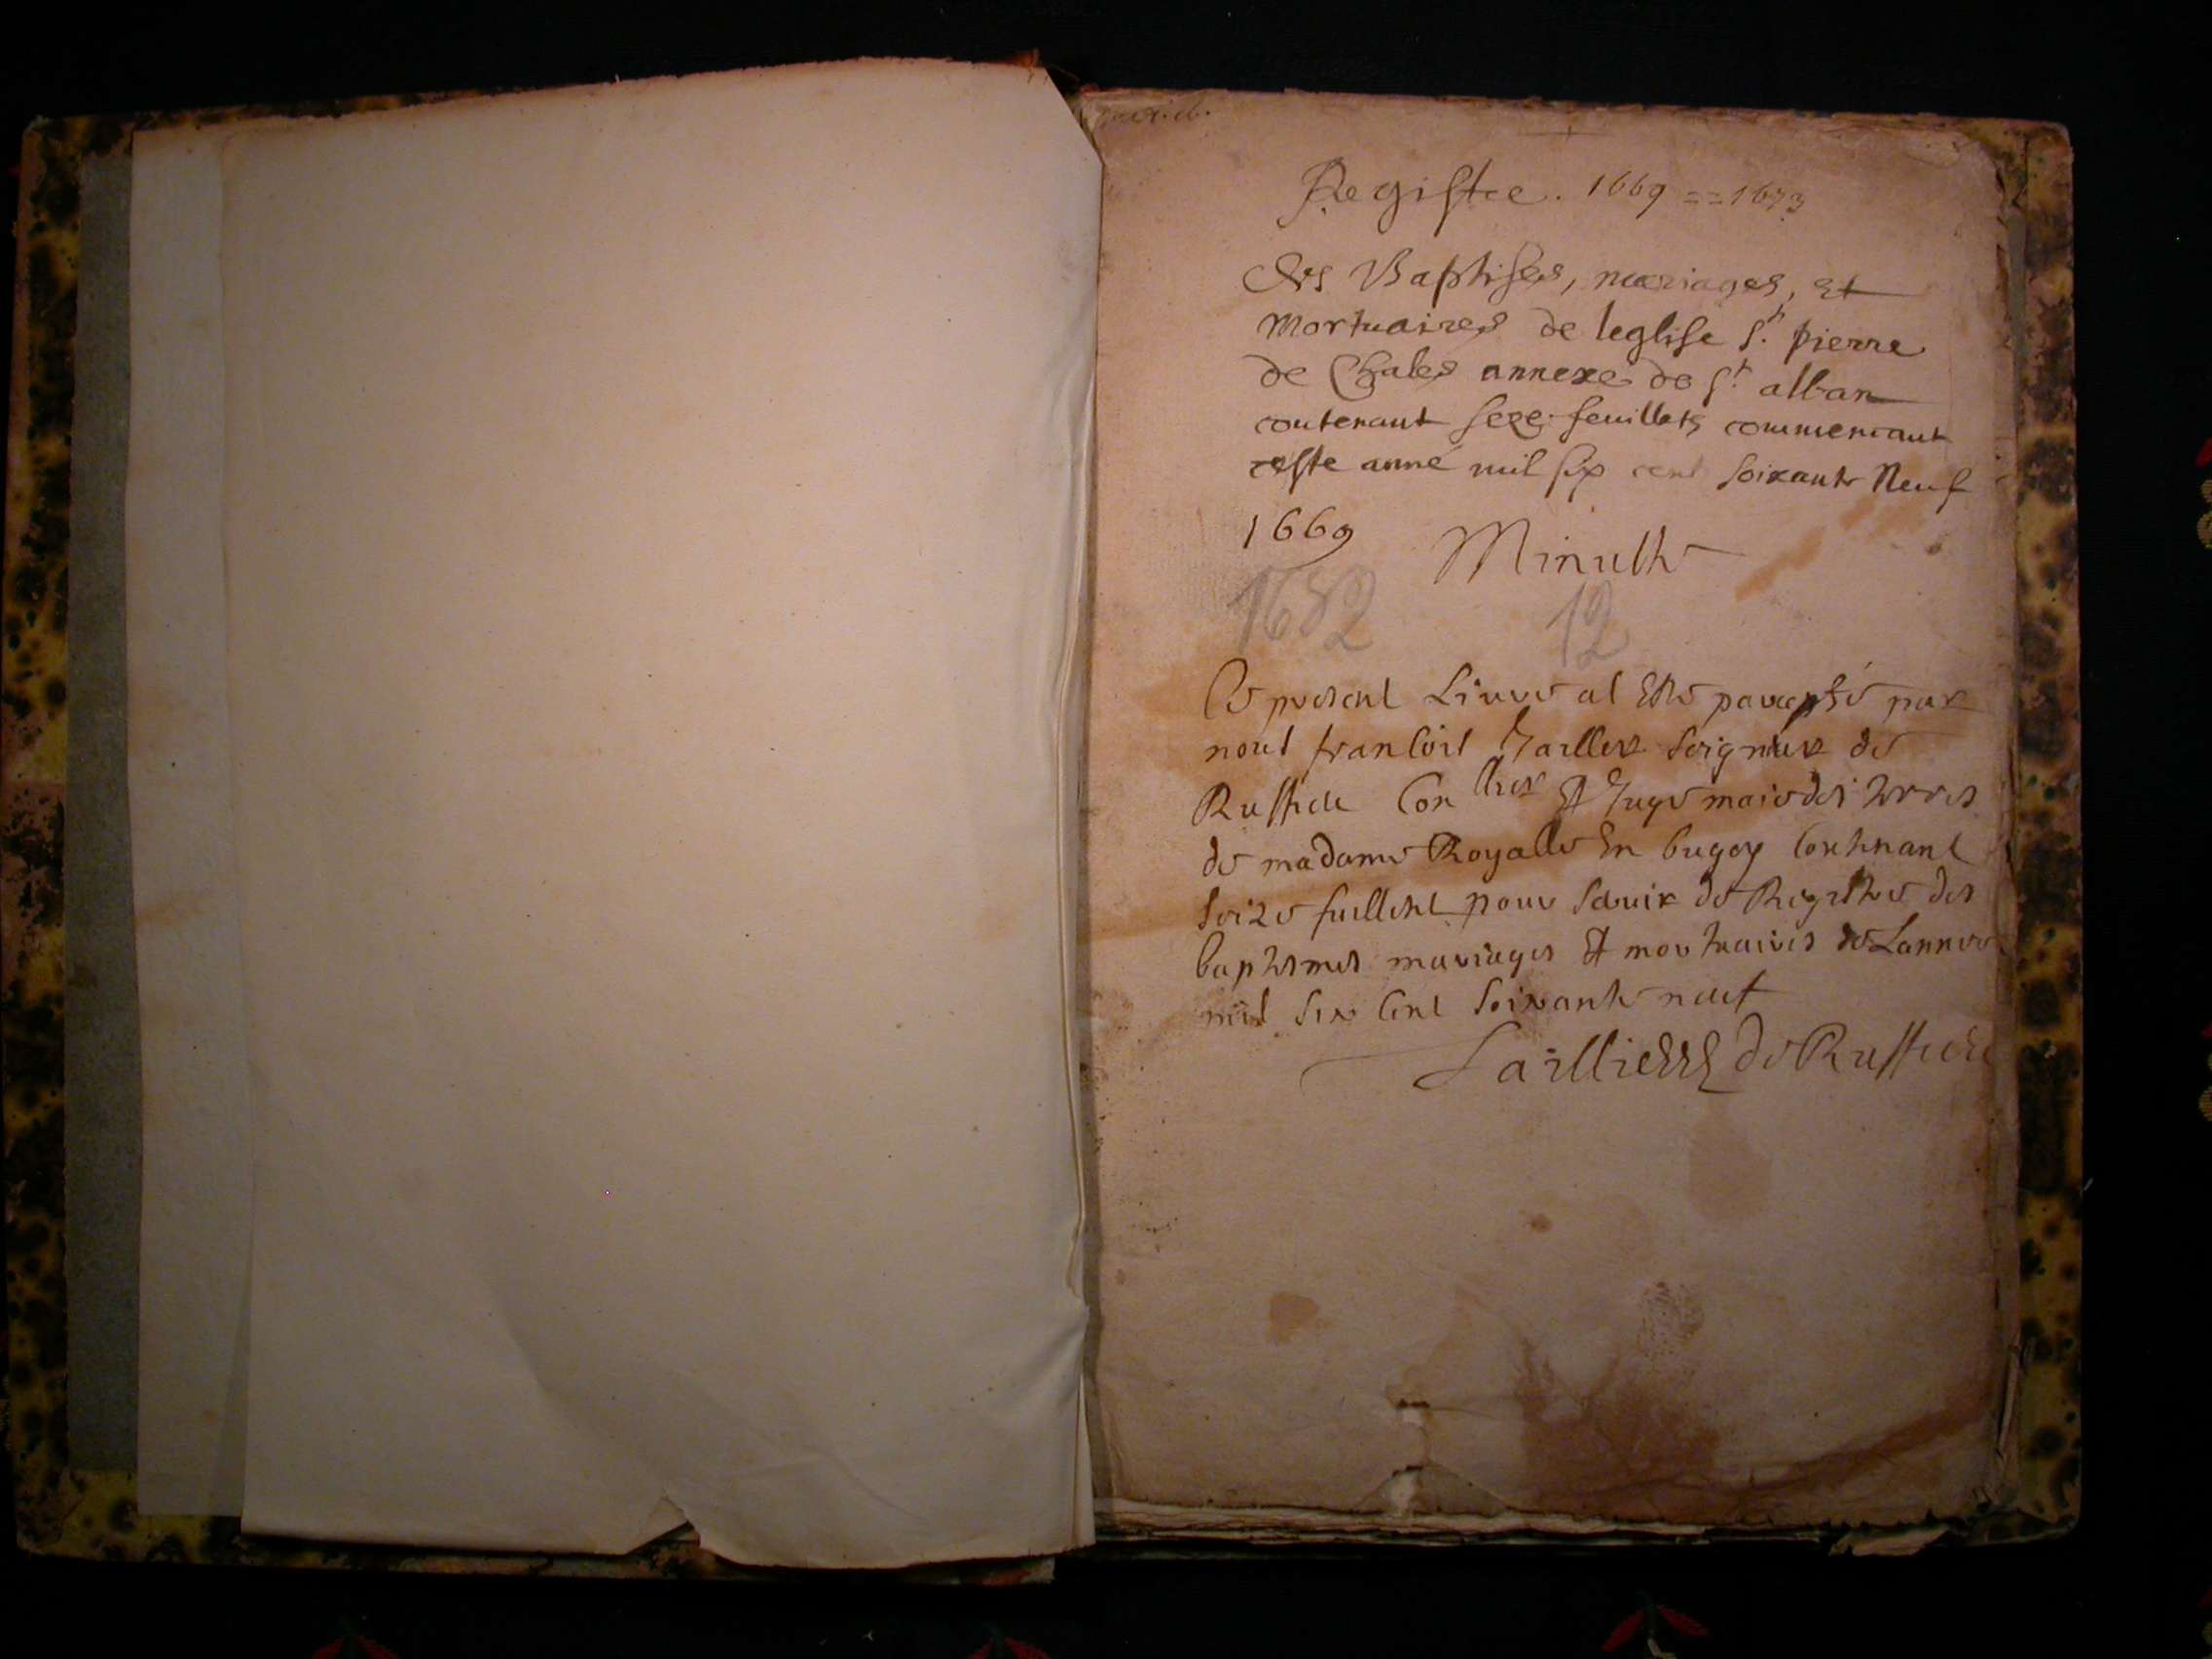 Registre. 1669 == 1673
des Baptises, mariages, et
mortuaires de leglise St. pierre
de Chales annexe de St. alban
contenant seze feuillets commencant
ceste anné mil six cent soixante Neuf
1669 Minutte
1682 12
Ce present Livre at este paraphé par
nous francois Taillier seigneur de
Con.ller Et Juge maie des terres
de madame Royalle En bugey Contenant
seize fuillest pour servir de Registre des
baptesmes mariages Et mortuaires de Lannee
mil six cent soixante neuf
de